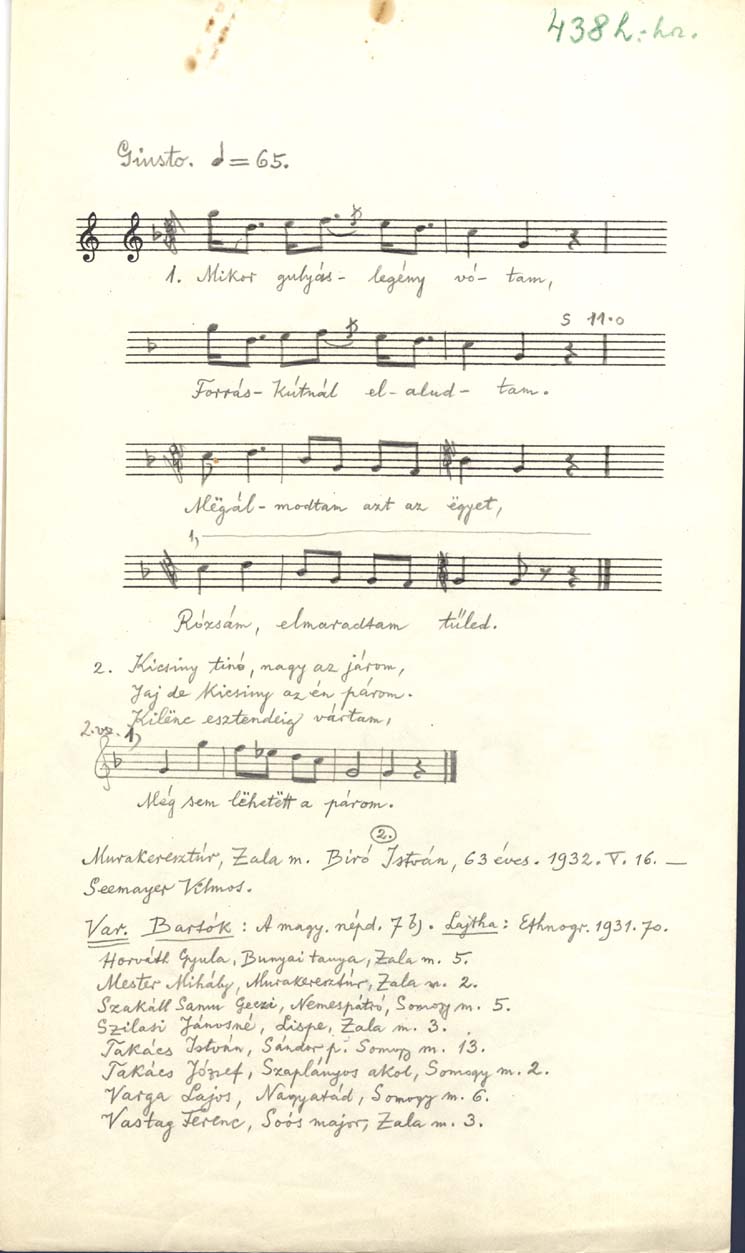 438 h.-hr.
Giusto. = 65.
1. Mikor gulyás- legény vó- tam,
S 11.0
Forrás- kútnál el- alud- tam.
Mëgál- modtam azt az ëgyet,
1,
Rózsám, elmaradtam tűled.
2. Kicsiny tinó, nagy az járom,
Jaj de kicsiny az én párom.
Kilënc esztendeig vártam,
2. vsz. 1,
Még sem lëhetëtt a párom.
2.
Murakeresztúr, Zala m. Biró István, 63 éves. 1932. V. 16. —
Seemayer Vilmos.
Var. Bartók: A magy. népd. 7 b). Lajtha: Ethnogr. 1931. 70.
Horváth Gyula, Bunyai tanya, Zala m. 5.
Mester Mihály, Murakeresztúr, Zala m. 2.
Szakáll Samu Geczi, Nemespátró, Somogy m. 5.
Szilasi Jánosné, Lispe, Zala m. 3.
Takács István, Sándor p. Somogy m. 13.
Takács József, Szaplányos akol, Somogy m. 2.
Varga Lajos, Nagyatád, Somogy m. 6.
Vastag Ferenc, Soós major, Zala m. 3.